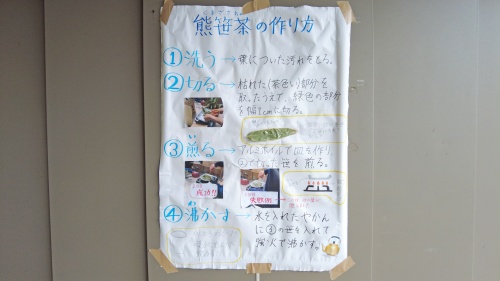 熊笹茶の作り方
①洗う→葉についた汚れをとる。
②切る→枯れた(茶色い)部分を
取ったうえで、緑色の部分
を幅1cmに切る。
③煎る→アルミホイルで皿を作り、
笹を煎る。
成功!!
失敗例
④沸かす→水を入れたやかん
に③の笹を入れて
強火で沸かす。